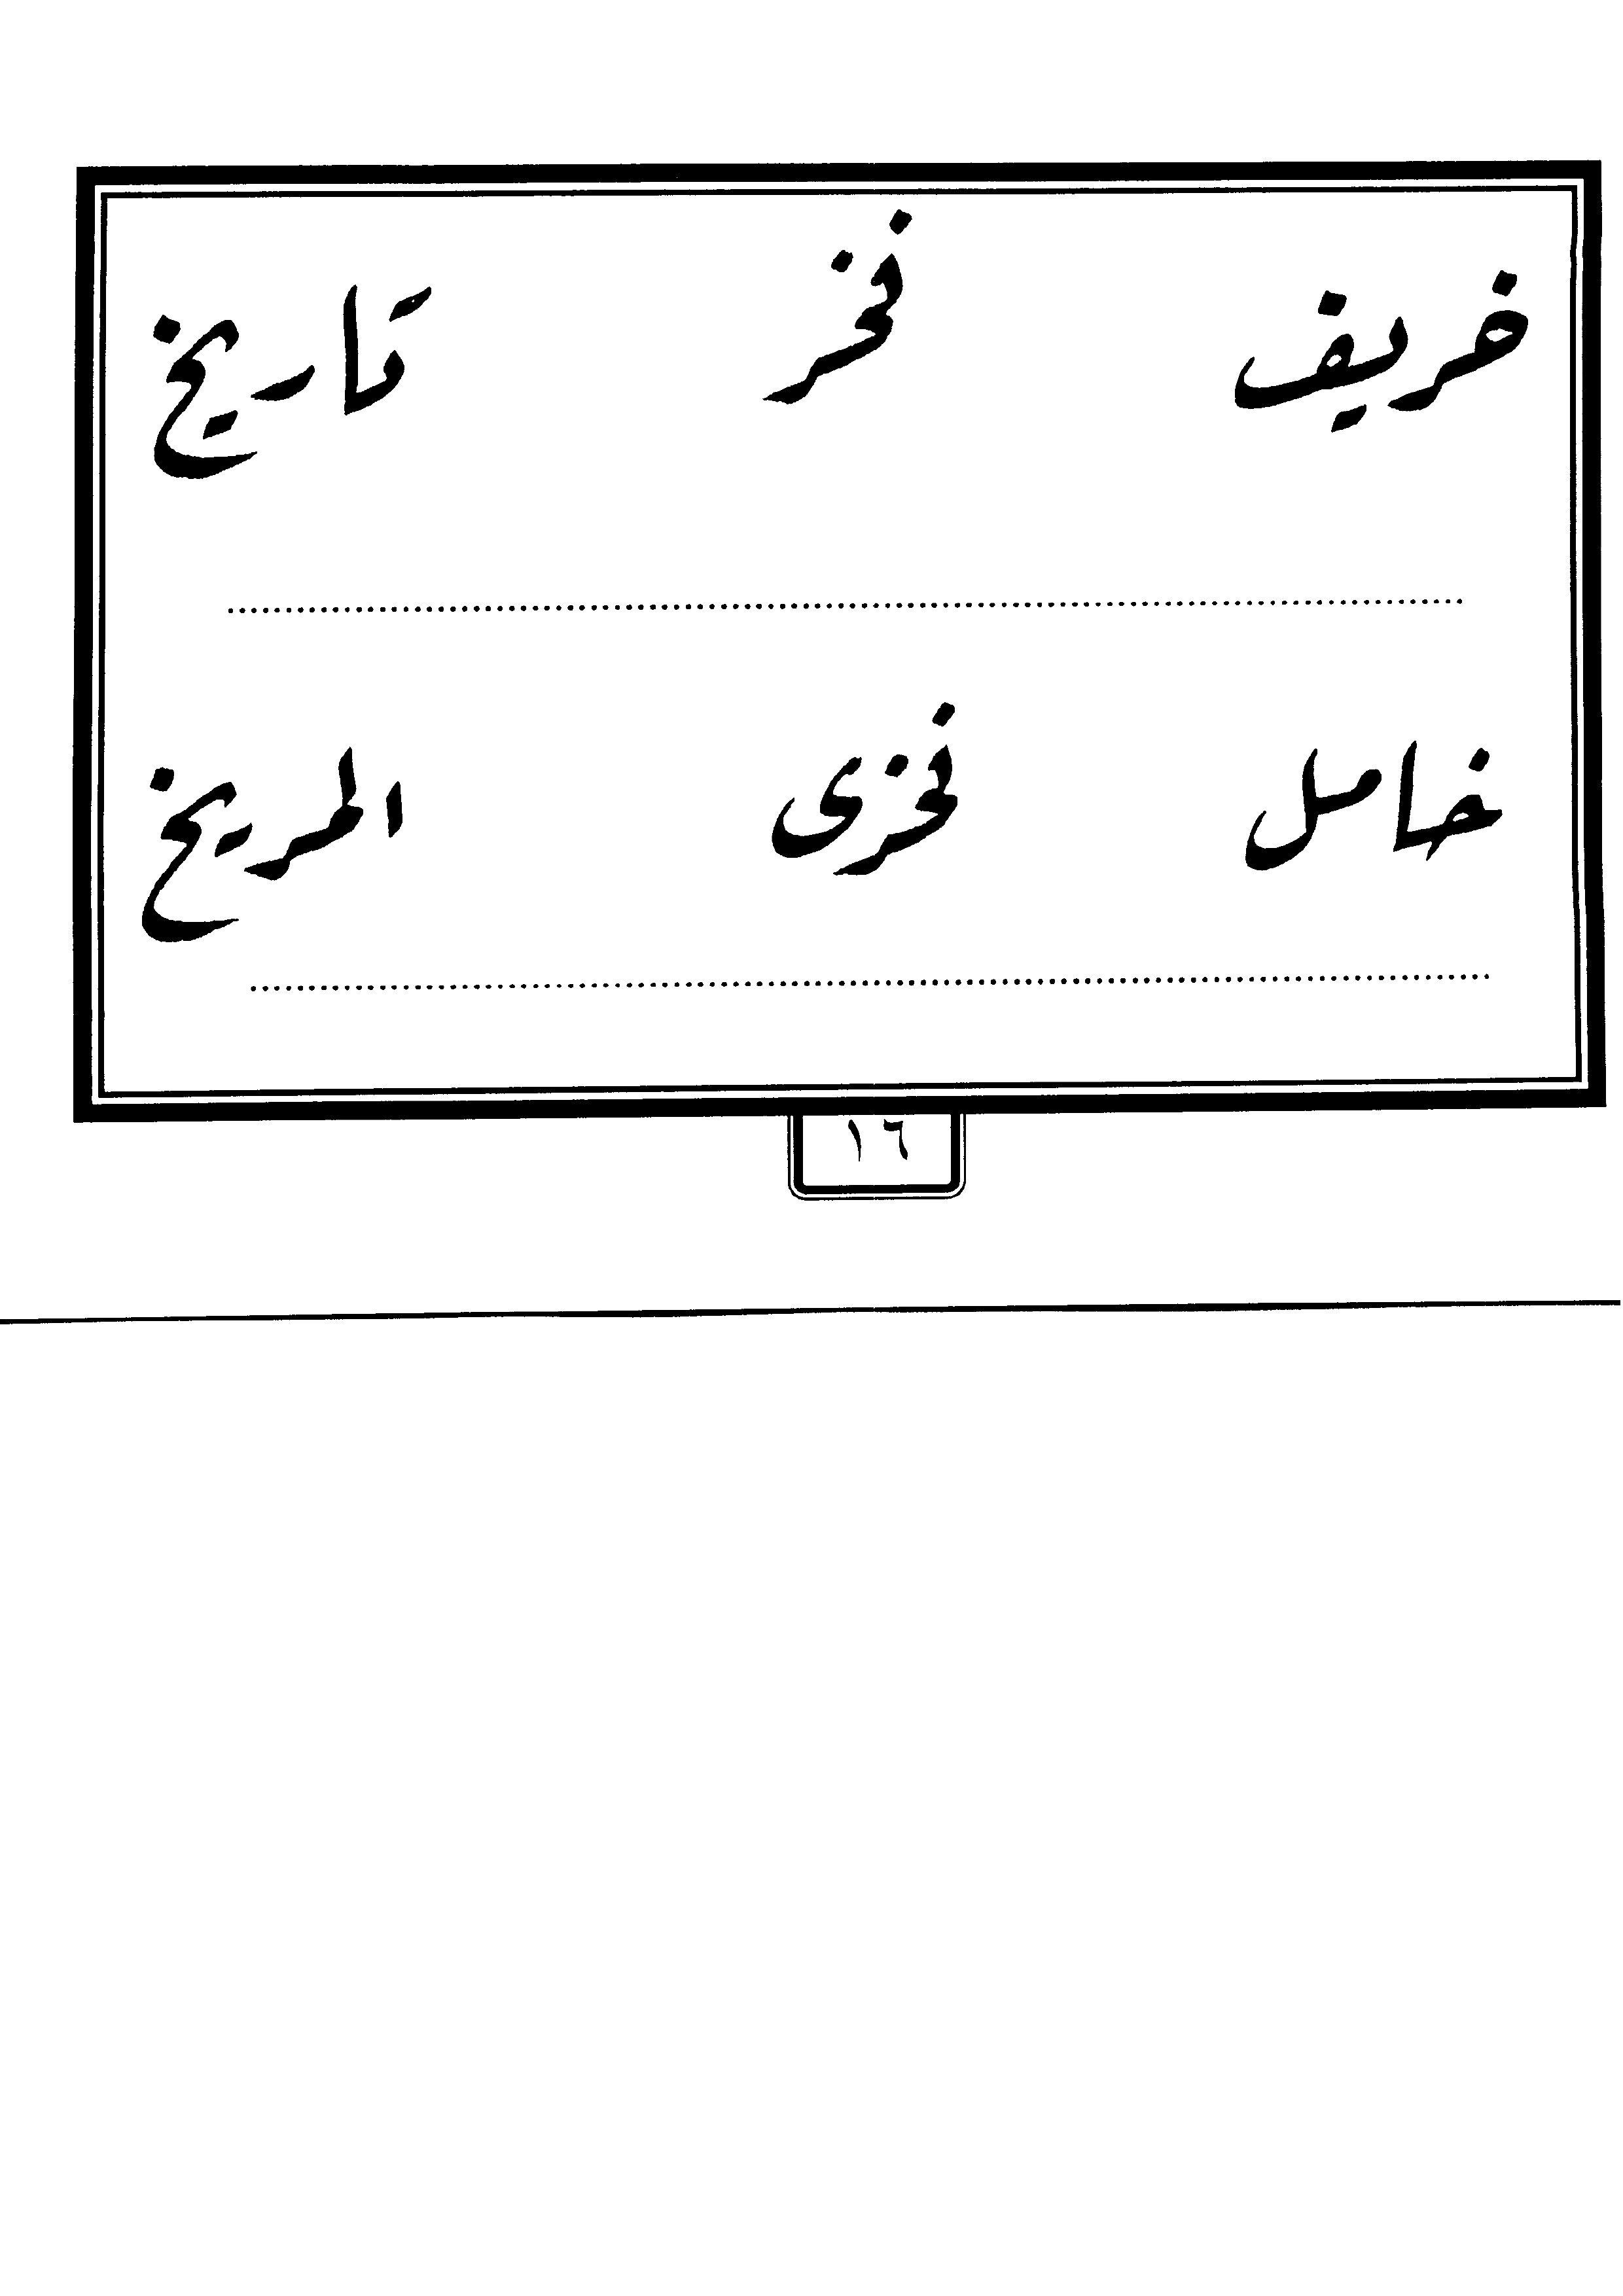 خريف فخر تاريخ
خامل فخرى المريخ
١٦